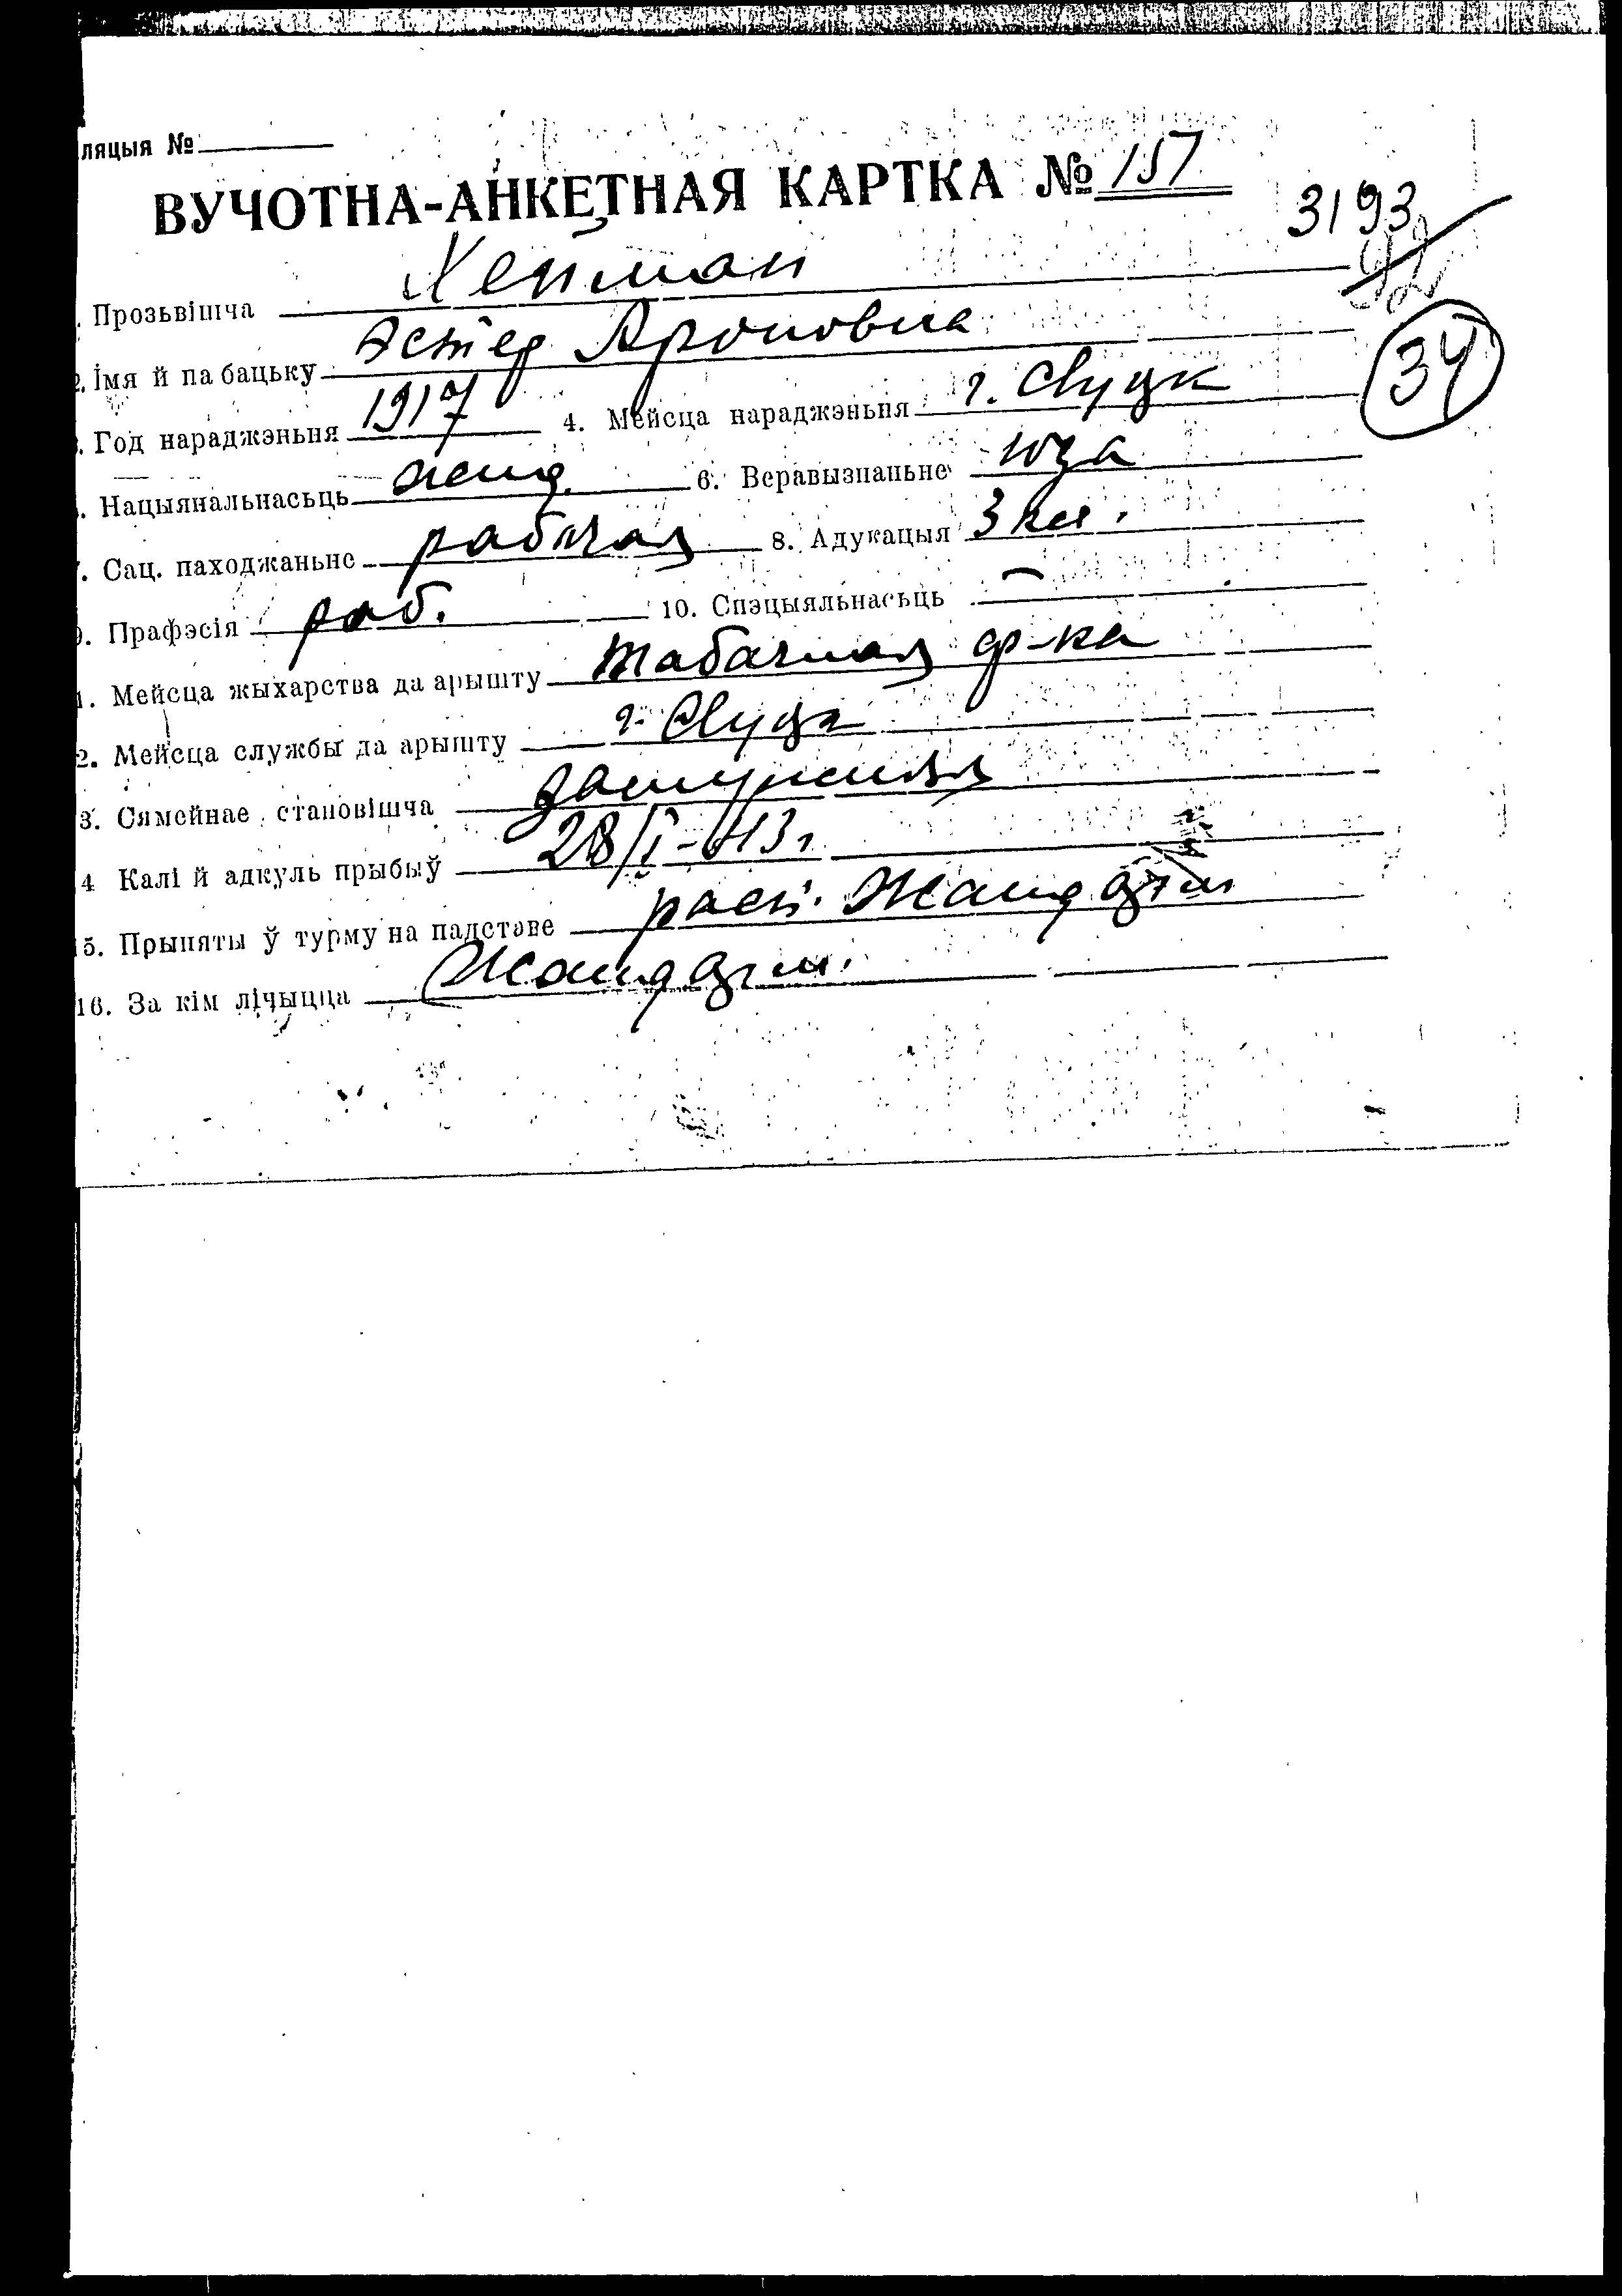 ляцыя №
ВУЧОТНА-АНКЕТНАЯ КАРТКА № 157
3193
92
. Прозьвішча Хейман
2. Імя й па бацьку Эстер Ароновна
34
. Год нараджэньня 1917 4. Мейсца нараджэньня г. Слуцк
. Нацыянальнасьць 6. Веравызнаньне
7. Сац. паходжаньне рабочая 8. Адукацыя 3 кл.
9. Прафэсія раб. 10. Спэцыяльнасьць —
1. Мейсца жыхарства да арышту табачная ф-ка
2. Мейсца службы да арышту г. Слуцк
3. Сямейнае становішча замужняя
4 Калі й адкуль прыбыў 28/I-43 г.
15. Прыняты ў турму на падставе расп. Жандарм
16. За кім лічыцца Жандарм.